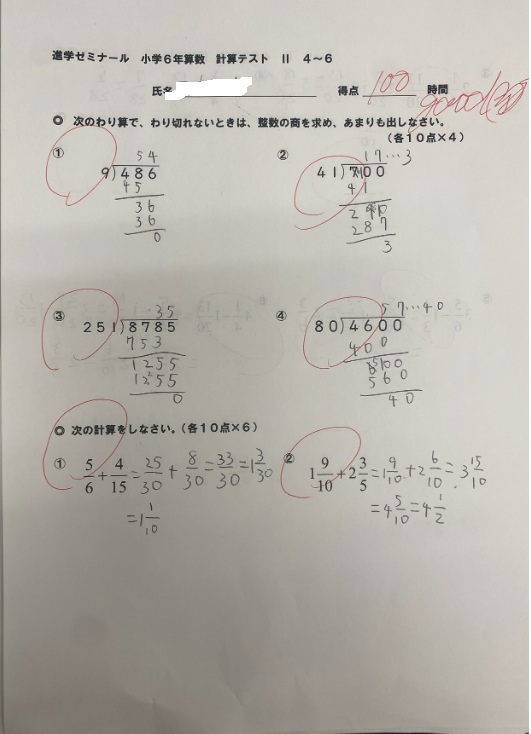 進学ゼミナール 小学6年算数 計算テスト Ⅱ 4～6
氏名 得点 100 時間
good
◎ 次のわり算で、わり切れないときは、整数の商を求め、あまりも出しなさい。
(各10点×4)
① 54
9)486
45
36
36
0
② 17…3
41)700
41
290
287
3
③ 35
251)8785
753
1255
1255
0
④ 57…40
80)4600
400
600
560
40
◎ 次の計算をしなさい。(各10点×6)
① 5/6 + 4/15 = 25/30 + 8/30 = 33/30 = 1 3/30
= 1 1/10
② 1 9/10 + 2 3/5 = 1 9/10 + 2 6/10 = 3 15/10
= 4 5/10 = 4 1/2